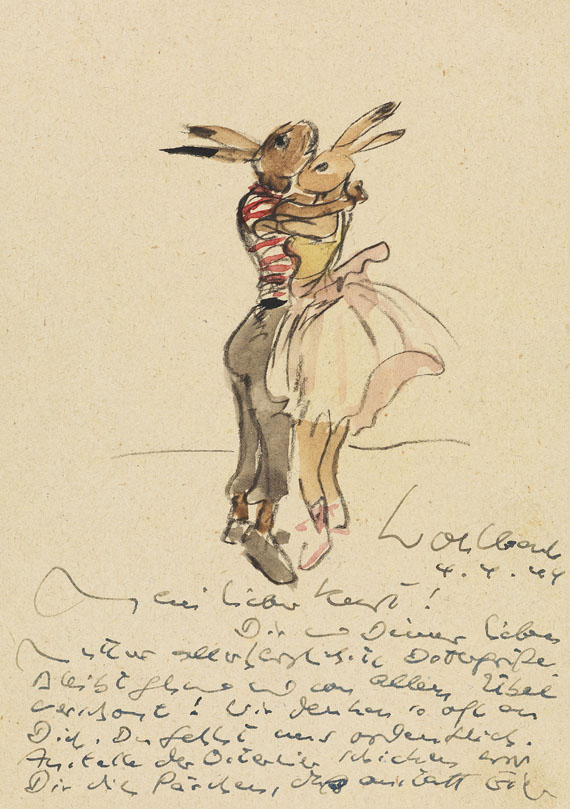 4.4.44
Mein lieber Kurt!
Dir und Deiner lieben
Mutter allerherzlichste
Bleibt gesund und von allem Übel
verschont! Wir denken so oft an
Dich. Du fehlst uns ordentlich.
Anstelle der Ostereier schicken wir
Dir dies Pärchen, das anstatt Eier